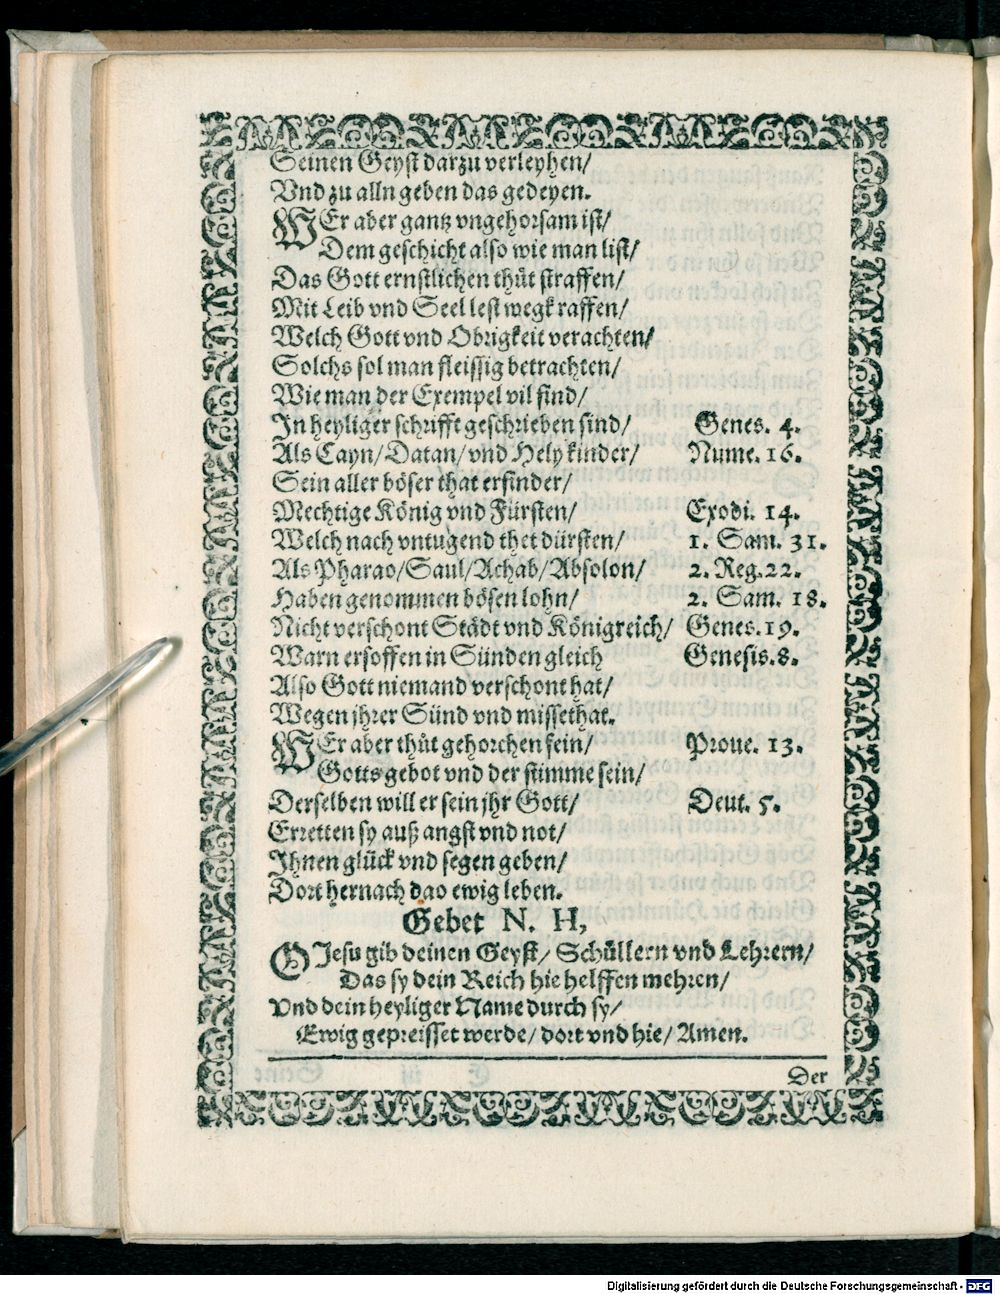 Seinen Geyst darzu verleyhen/
Vnd zu alln geben das gedeyen.
WEr aber gantz vngehorsam ist/
Dem geschicht also wie man list/
Das Gott ernstlichen thůt straffen/
Mit Leib vnd Seel lest wegk raffen/
Welch Gott vnd Obrigkeit verachten/
Solchs sol man fleissig betrachten/
Wie man der Exempel vil find/
In heyliger schrifft geschrieben sind/ Genes. 4.
Als Cayn/Datan/vnd Hely kinder/ Nume. 16.
Sein aller böser that erfinder/
Mechtige König vnd Fürsten/ Exodi. 14.
Welch nach vntugend thet dürsten/ 1. Sam. 31.
Als Pharao/Saul/Achab/Absolon/ 2. Reg.22.
Haben genommen bösen lohn/ 2. Sam. 18.
Nicht verschont Städt vnd Königreich/ Genes.19.
Warn ersoffen in Sünden gleich Genesis.8.
Also Gott niemand verschont hat/
Wegen jhrer Sünd vnd missethat.
WEr aber thůt gehorchen fein/ Proue. 13.
Gotts gebot vnd der stimme sein/
Derselben will er sein jhr Gott/ Deut. 5.
Erretten sy auß angst vnd not/
Ihnen glück vnd segen geben/
Dort hernach dao ewig leben.
Gebet N. H,
O Jesu gib deinen Geyst/ Schüllern vnd Lehrern/
Das sy dein Reich hie helffen mehren/
Vnd dein heyliger Name durch sy/
Ewig gepreisset werde/ dort vnd hie/ Amen.
Der
Digitalisierung gefördert durch die Deutsche Forschungsgemeinschaft - DFG